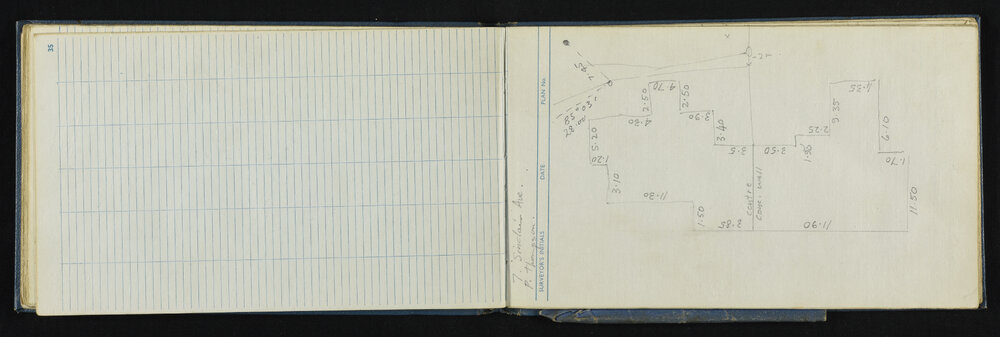 35
PLAN No.
DATE
SURVEYOR'S INITIALS
7, Sinclair Ave.
P. Thompson.
4.70
2.50
2.50
4.20
3.90
5.20
3.40
1.20
3.5
3.10
11.80
1.50
3.85
centre
conc. wall
11.90
3.50
1.90
2.25
9.35
4.35
6.10
1.70
11.50